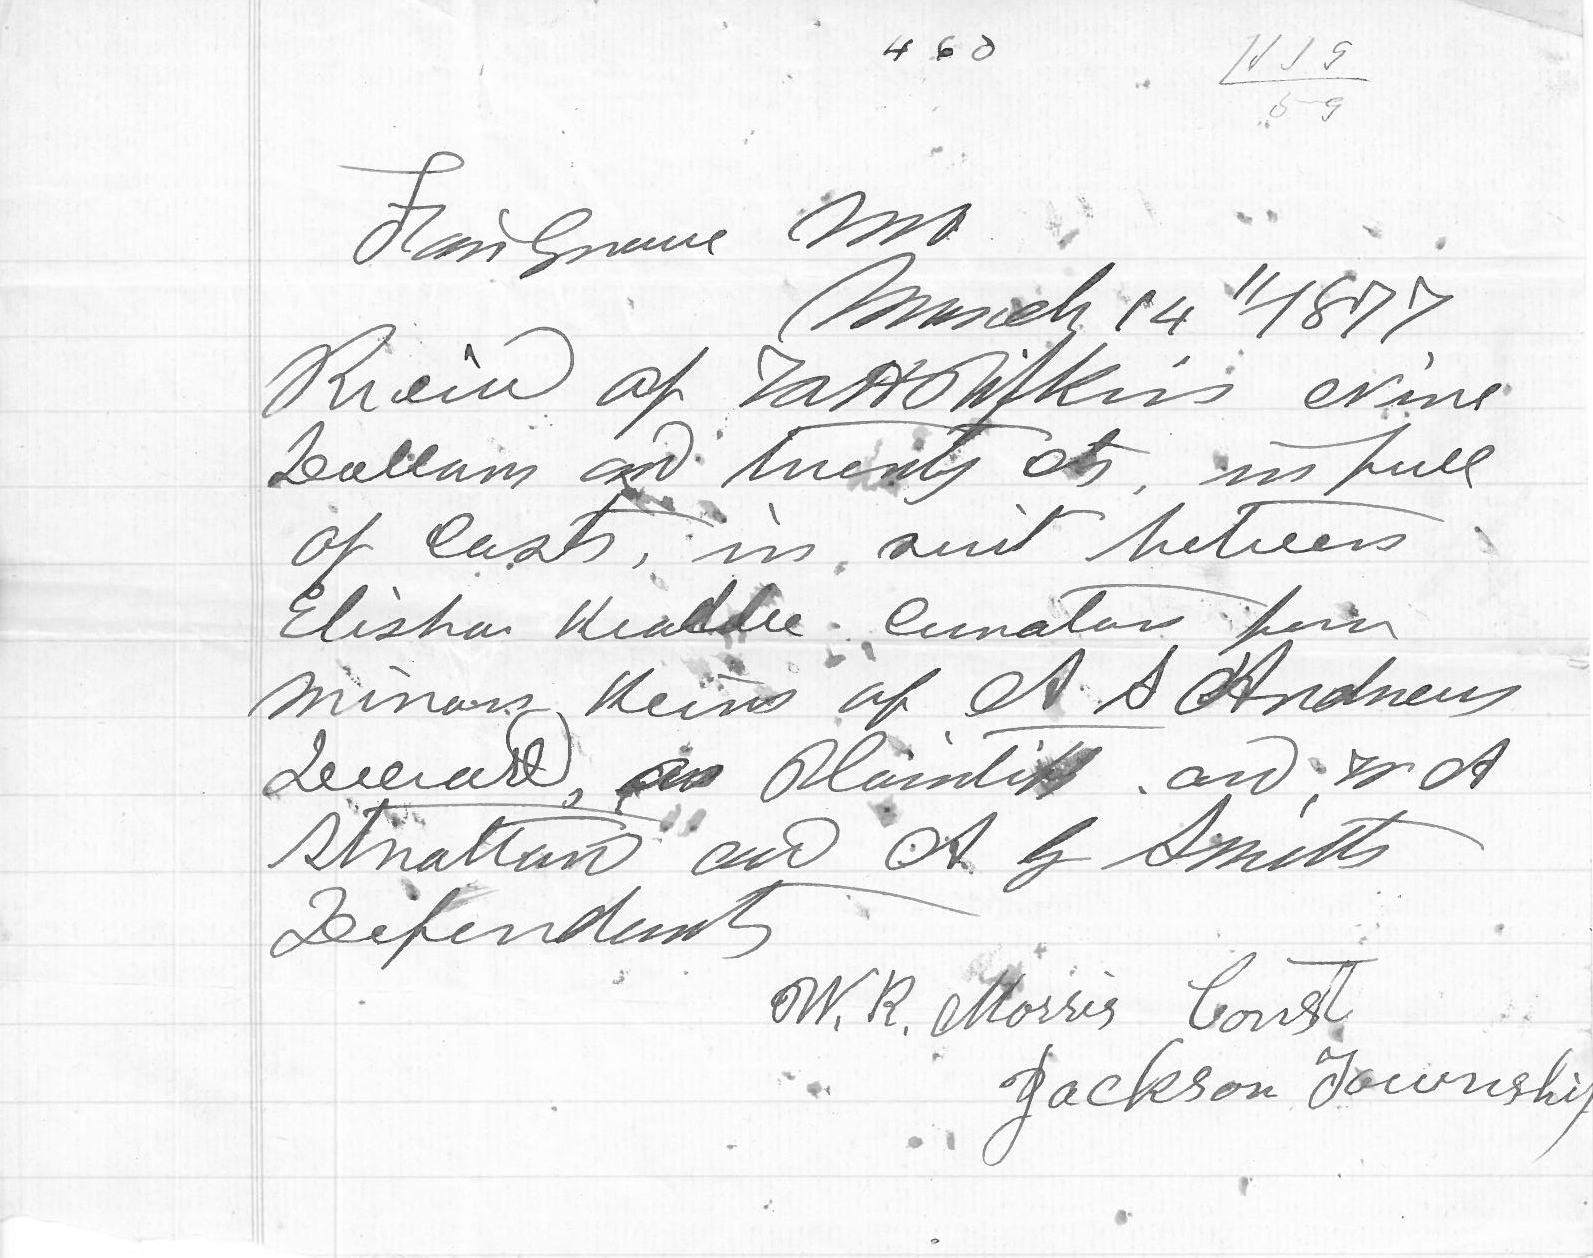 460
59
Fair Grove Mo
March 14" 1877
Recivd of Pipkin Nine
Dollars and twenty cts, in full
of Costs, in suit between
Elisha Headlee Curator for
minor Heirs of A S Andrews
Deceasd, as Plaintiff and W A
Stratton and A G Smith
Defendants
W. R. Morris Const
Jackson Township